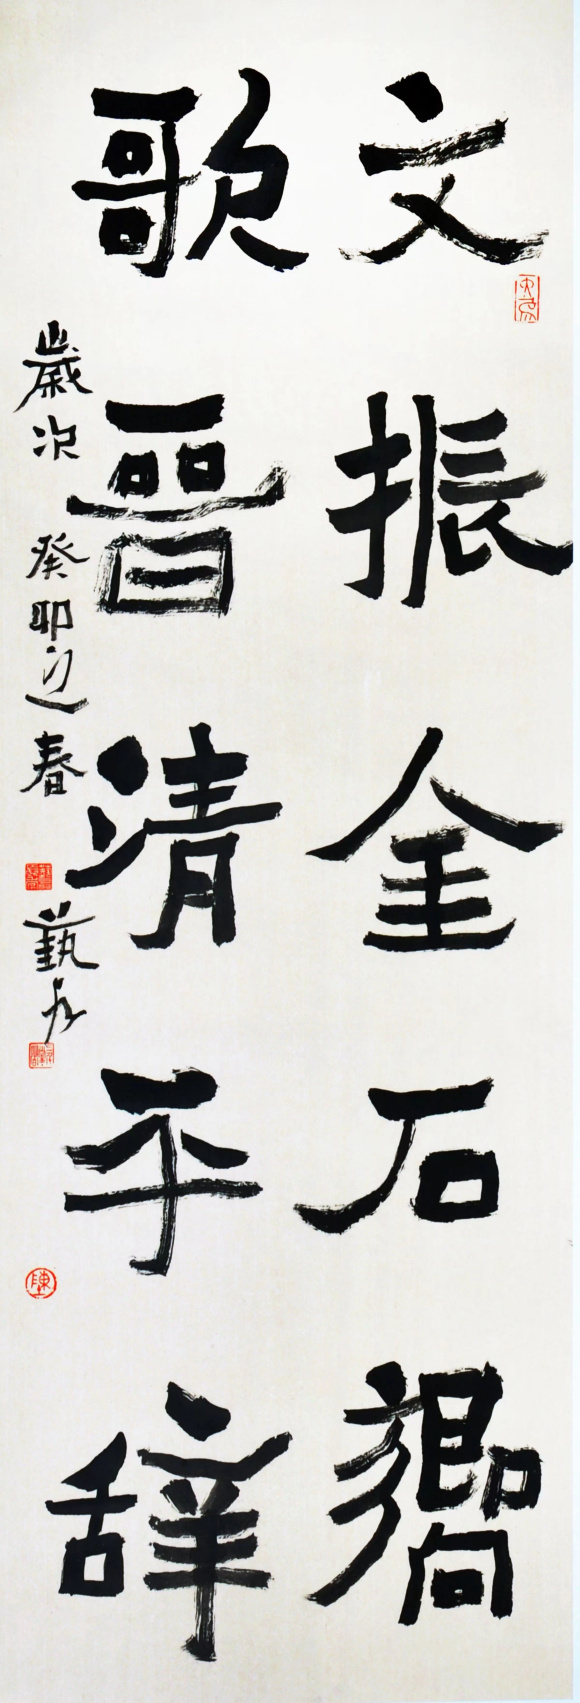 文振金石嚮
歌晉清平辞
歲次癸卯迎春
藝
陳